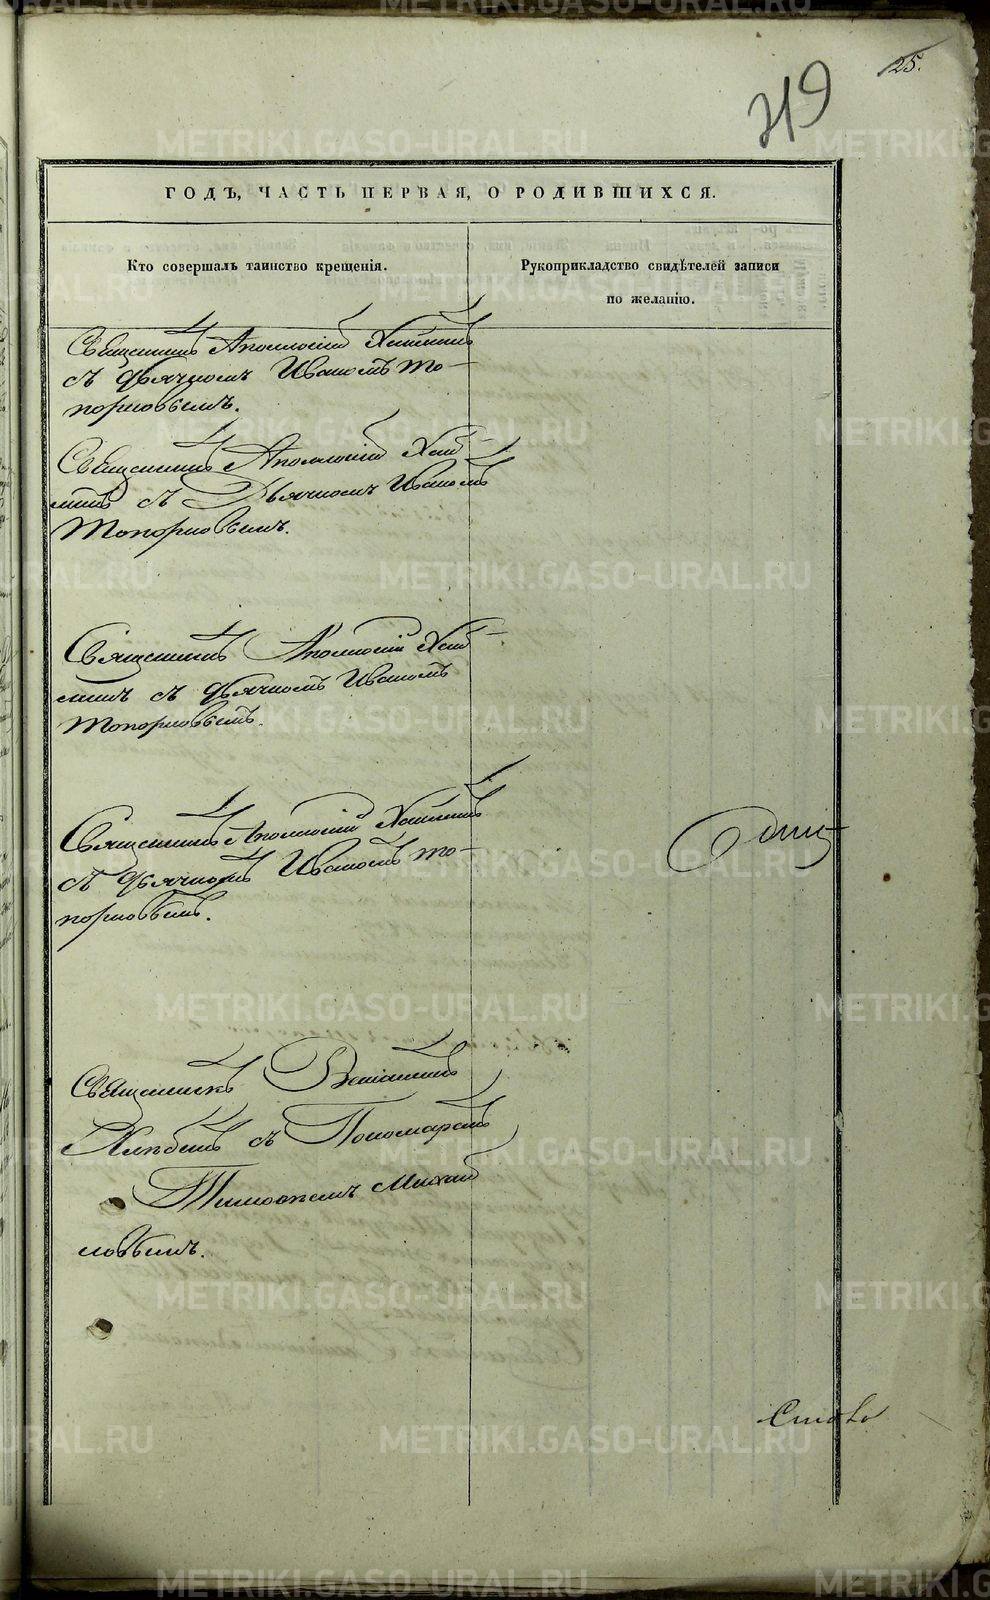 25.
219
ГОДЪ, ЧАСТЬ ПЕРВАЯ, О РОДИВШИХСЯ.
Кто совершалъ таинство крещенія.
Рукоприкладство свидѣтелей записи
по желанію.
Священникъ Аполлоній
съ дьячкомъ Иваномъ То-
порковымъ.
Священникъ Аполлоній
съ Дьячкомъ Иваномъ
Топорковымъ.
Священникъ Аполлоній
съ дьячкомъ Иваномъ
Топорковымъ.
Священникъ Аполлоній
съ дьячкомъ Иваномъ То-
порковымъ.
Священникъ Веніаминъ
съ Пономаремъ
Тимофеемъ Михай
ловымъ.
METRIKI.GASO-URAL.RU